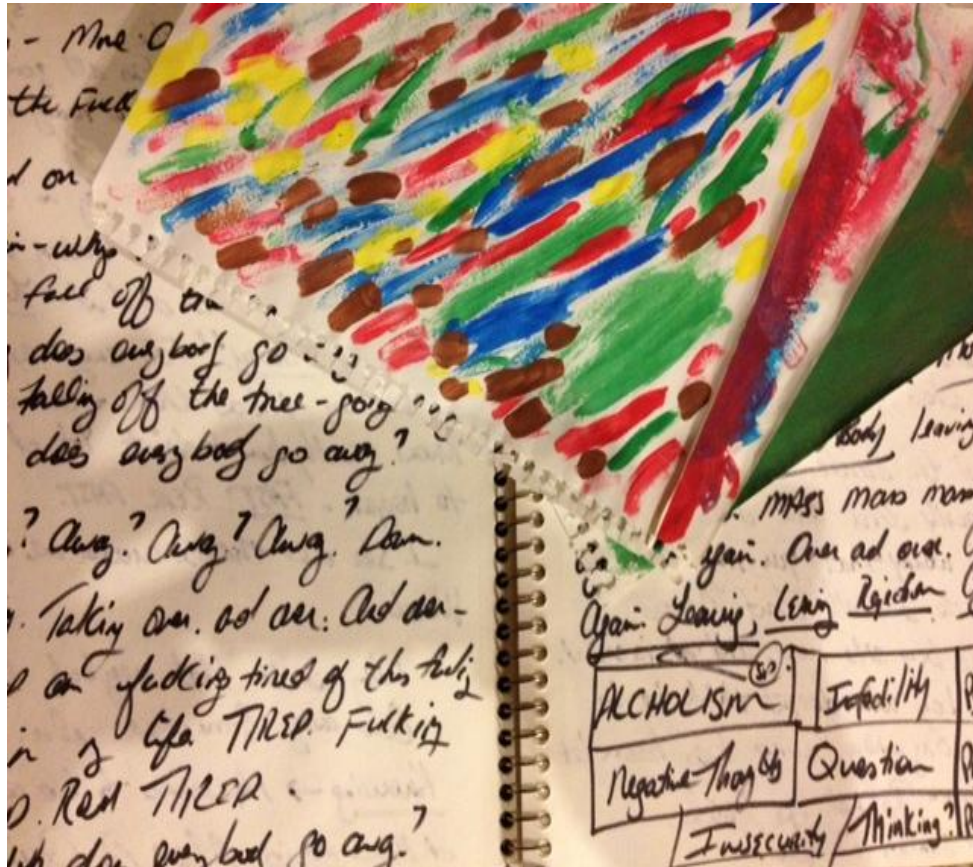 - More O
the Fuck
d on
n - why
fall off tree
does everybody go
falling off the tree - going
does everybody go away?
? Away? Away? Away? Down.
. Taking over. ad over. And over -
am fucking tired of this
in life. TIRED. Fucking
. Real TIRED.
does everybody go away?
Body leaving
. MASS Mass mass
again. Over ad over.
Again. Leaving, Leaving Rejection
ALCHOLISM
Infidility
Negative Thoughts
Question
INSECURITY
Thinking?